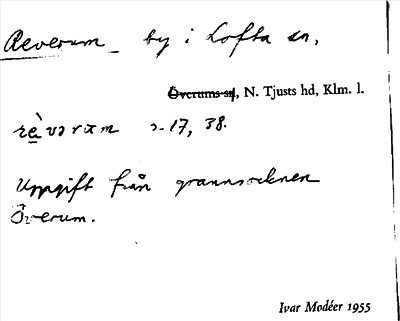 Reverum by i Lofta sn,
Överums sn, N. Tjusts hd, Klm. l.
rèvarum 2-17, 38.
Uppgift från grannsocknen
Överum.
Ivar Modéer 1955